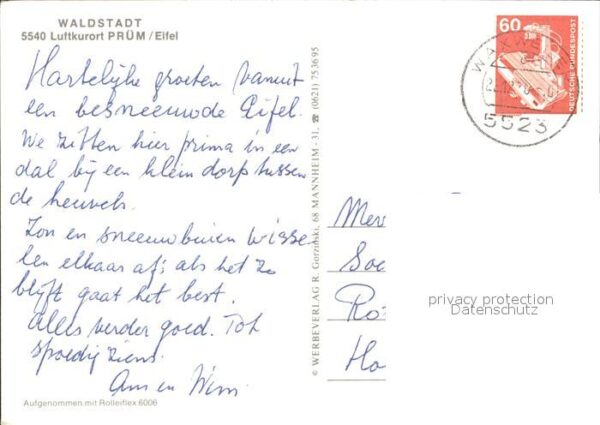 WALDSTADT
5540 Luftkurort PRÜM / Eifel
Hartelijke groeten vanuit
een besneeuwde Eifel.
We zitten hier prima in een
dal bij een klein dorp tussen
de heuvels.
Zon en sneeuwbuien wisse
len elkaar af; als het zo
blijft gaat het best.
Alles verder goed. Tot
spoedig ziens.
en Wim
Aufgenommen mit Rolleiflex 6006
© WERBEVERLAG R. Gorzinski, 68 MANNHEIM - 31, ☎ (0621) 753695
60
DEUTSCHE BUNDESPOST
5523
Mev
Soe
Ro
Ho
privacy protection
Datenschutz